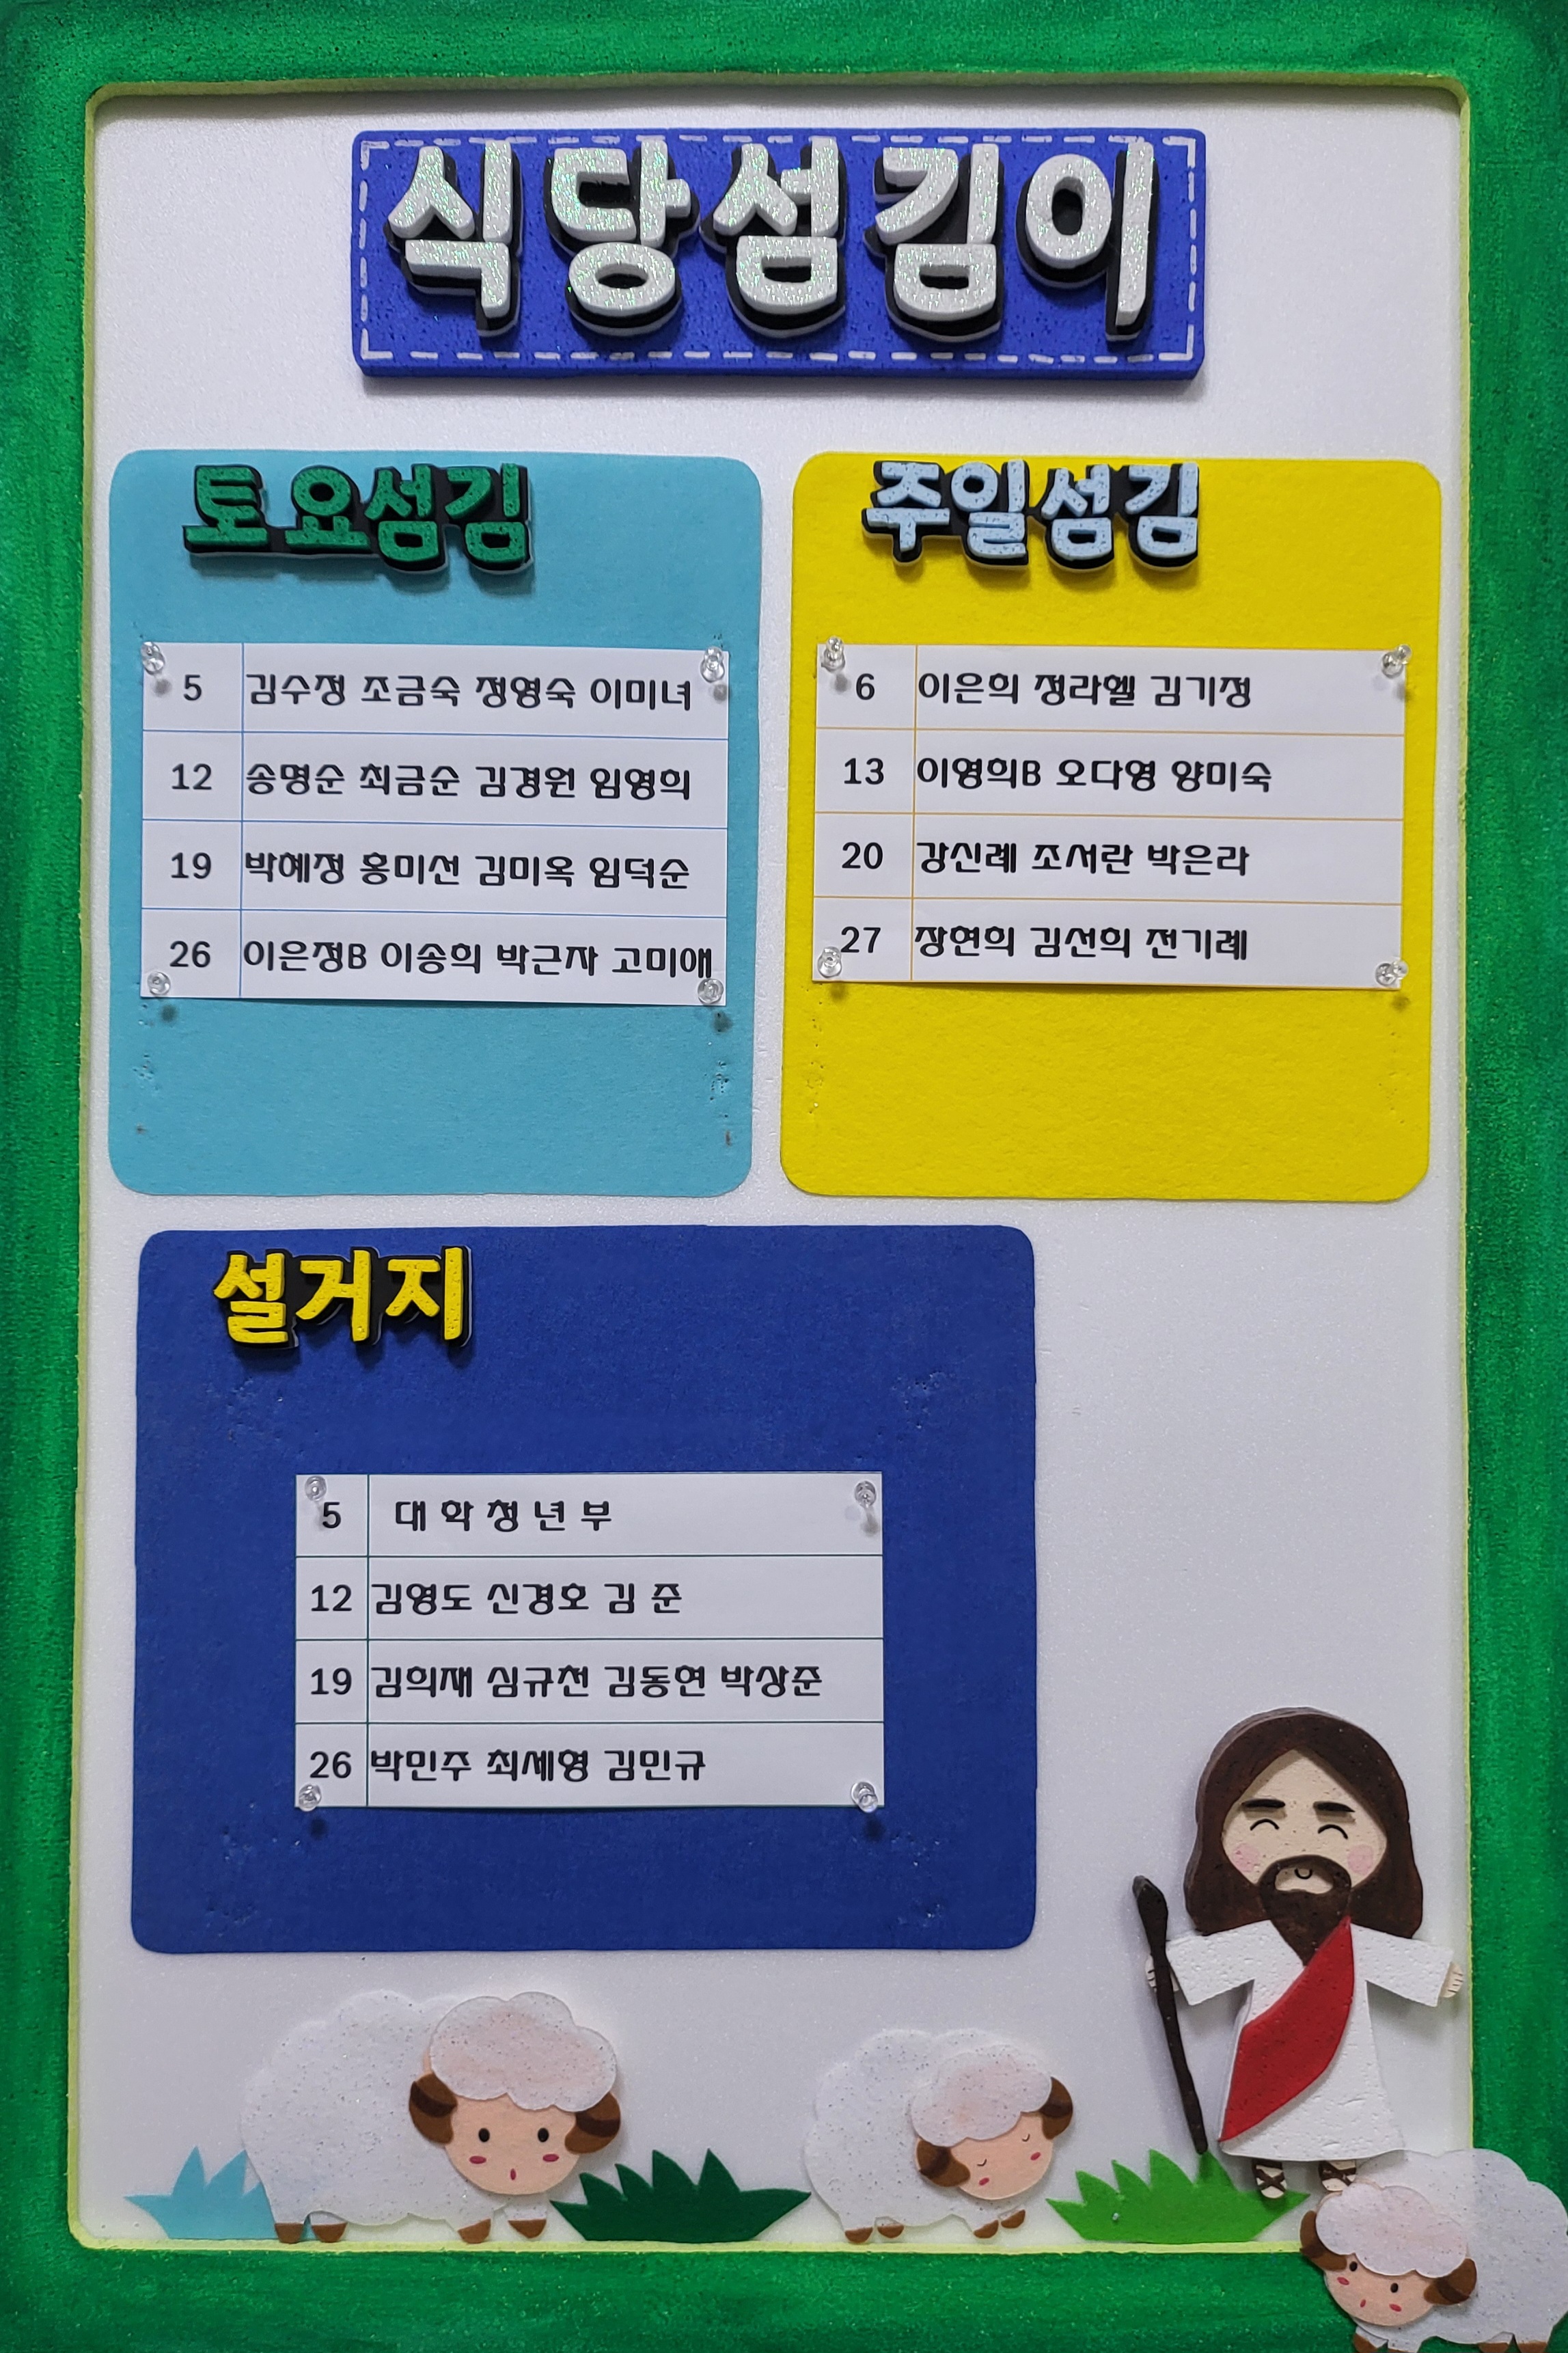 식당섬김이
토요섬김
5 김수정 조금숙 정영숙 이미녀
12 송명순 최금순 김경원 임영희
19 박혜정 홍미선 김미옥 임덕순
26 이은정B 이송희 박근자 고미애
주일섬김
6 이은희 정라헬 김기정
13 이영희B 오다영 양미숙
20 강신례 조서란 박은라
27 장현희 김선희 전기례
설거지
5 대 학 청 년 부
12 김영도 신경호 김 준
19 김희재 심규천 김동현 박상준
26 박민주 최세형 김민규